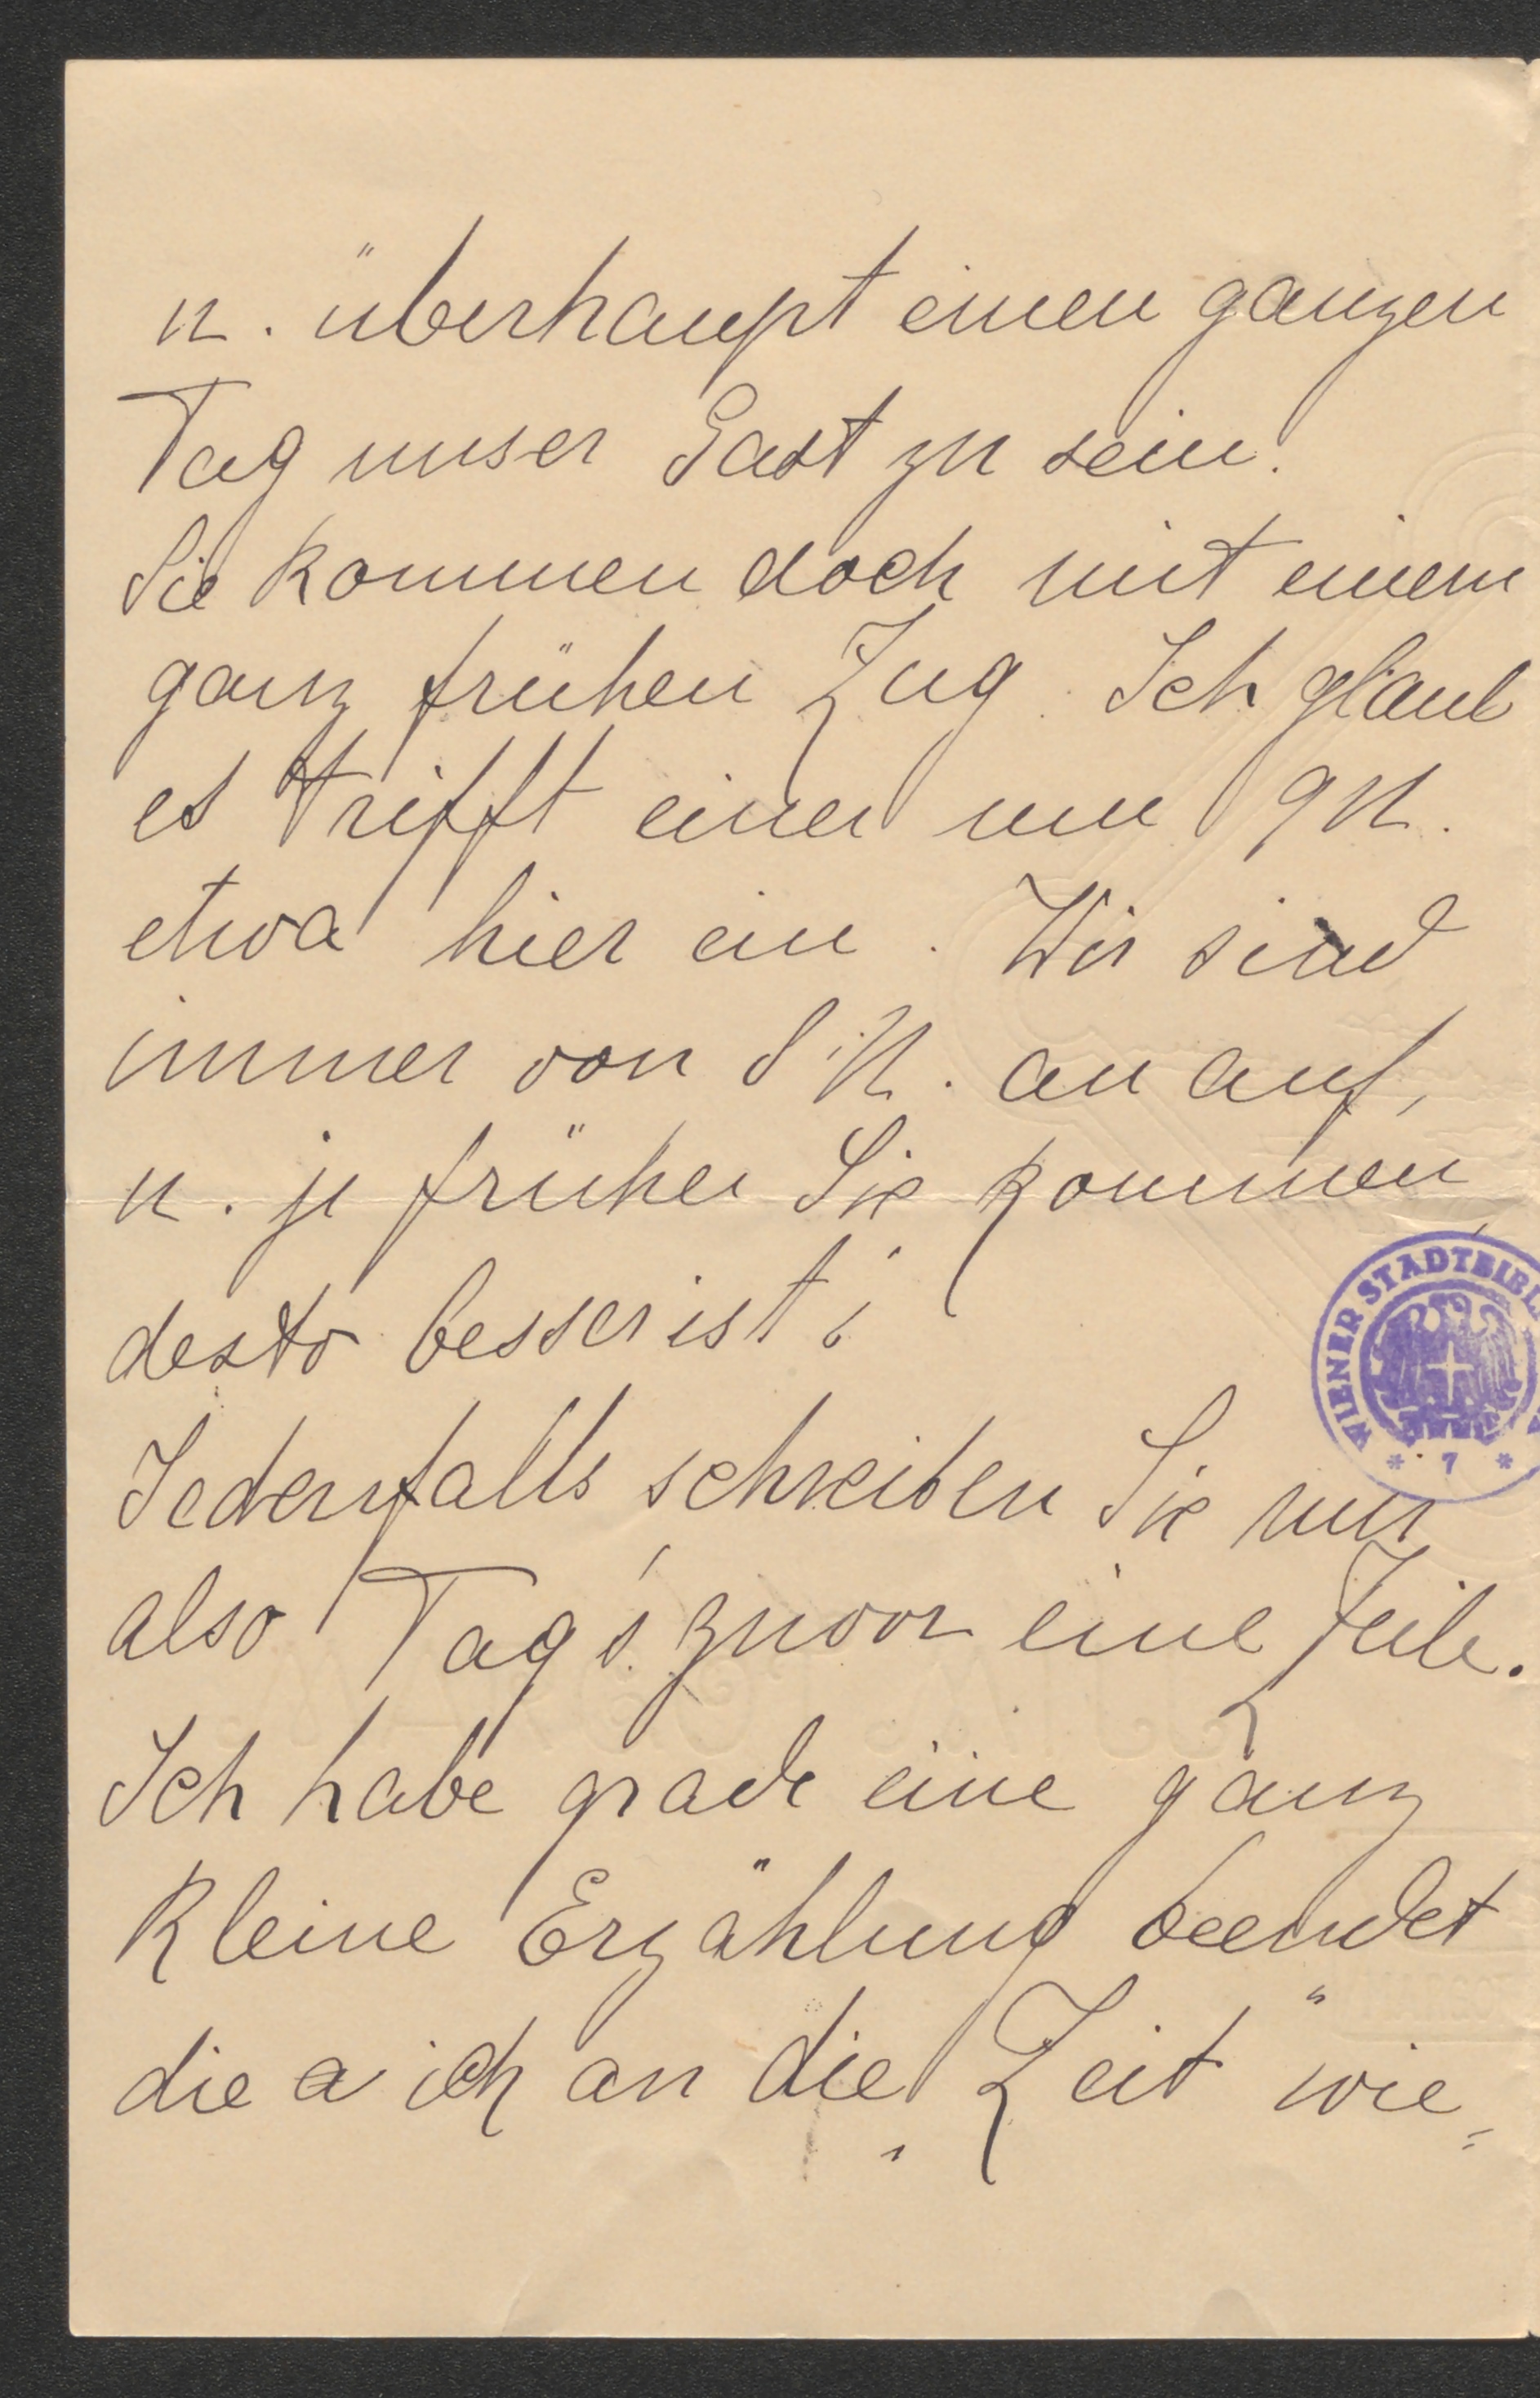 u. überhaupt einen ganzen
Tag unser Gast zu sein.
Sie kommen doch mit einem
ganz frühen Zug. Ich glaub
es trifft einer um 9 U.
etwa hier ein. Wir sind
immer von 8 U. an auf,
u. je früher Sie kommen,
desto besser ist's
Jedenfalls schreiben Sie mir
also Tag's zuvor eine Zeile.
Ich habe grade eine ganz
kleine Erzählung beendet
die a ich an die „Zeit“ wie=
WIENER STADTBIBL
* 7 *